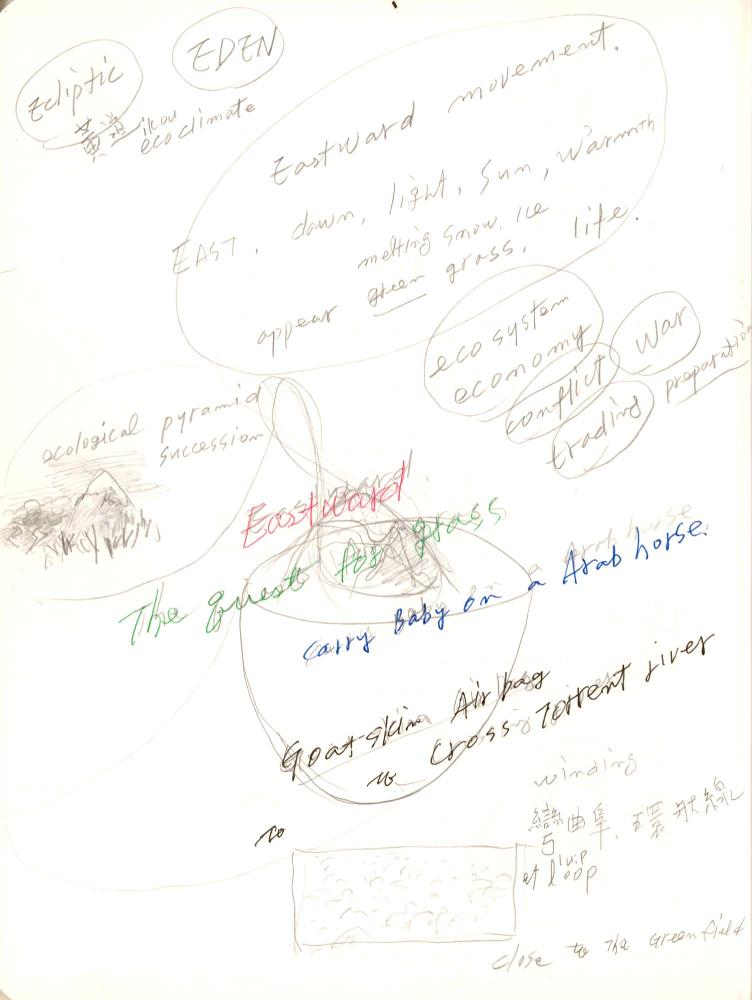 EDEN
Ecliptic
黃道 ikou
ecoclimate
Eastward movement.
EAST, dawn, light, sun, warmth
melting snow, ice
appear green grass, life.
eco system
economy
conflict
war
trading
preparation
ecological pyramid
succession
Eastward
The Quest for grass
Carry Baby on a Arab horse.
Goatskin Air bag
to Cross Torrent river
To
winding
曲
環狀線
at
loop
close to the Greenfield